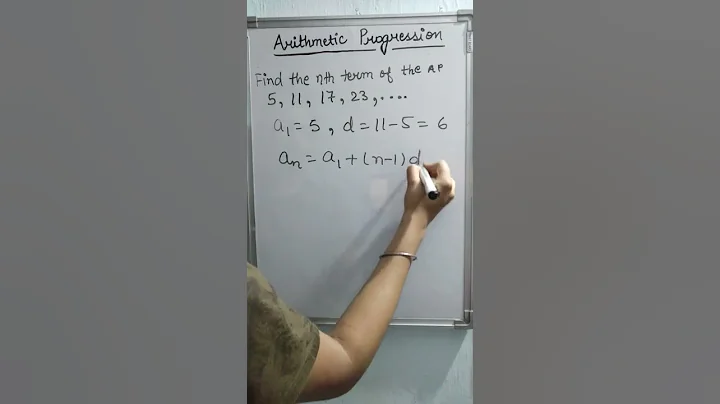 Arithmetic Progression
Find the nth term of the AP
5, 11, 17, 23, ....
a₁ = 5 , d = 11 - 5 = 6
aₙ = a₁ + (n-1) d